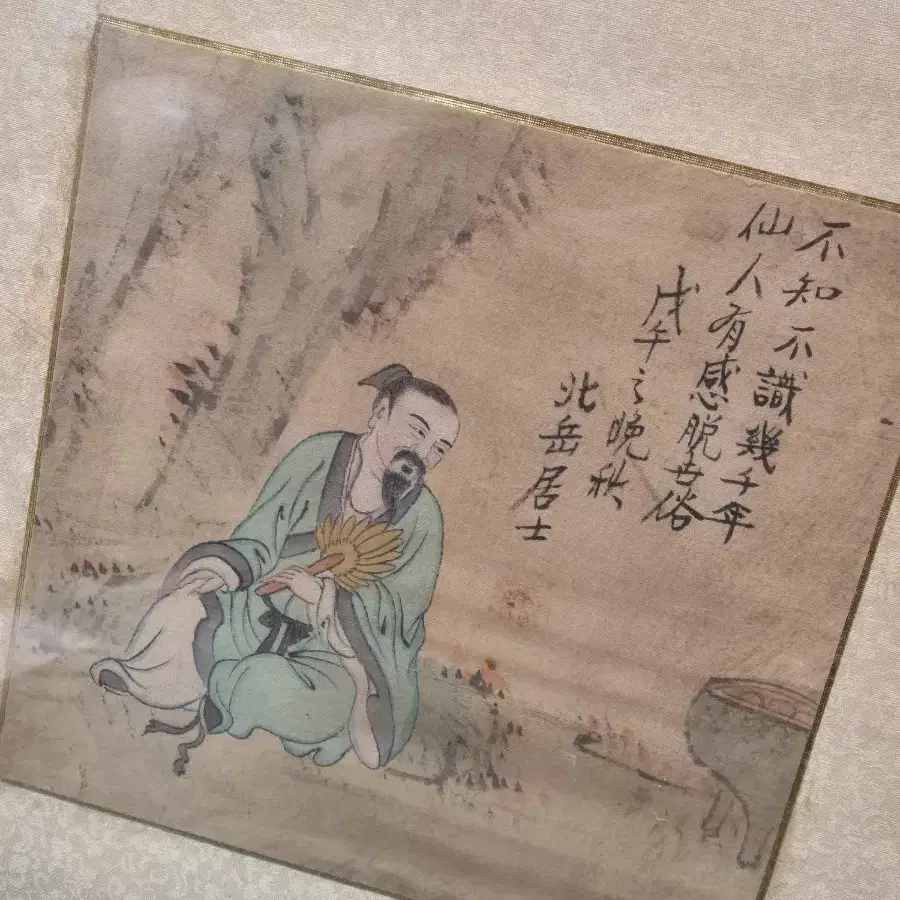 不知不識幾千年
仙人有感脫世俗
戊午之晚秋
北岳居士